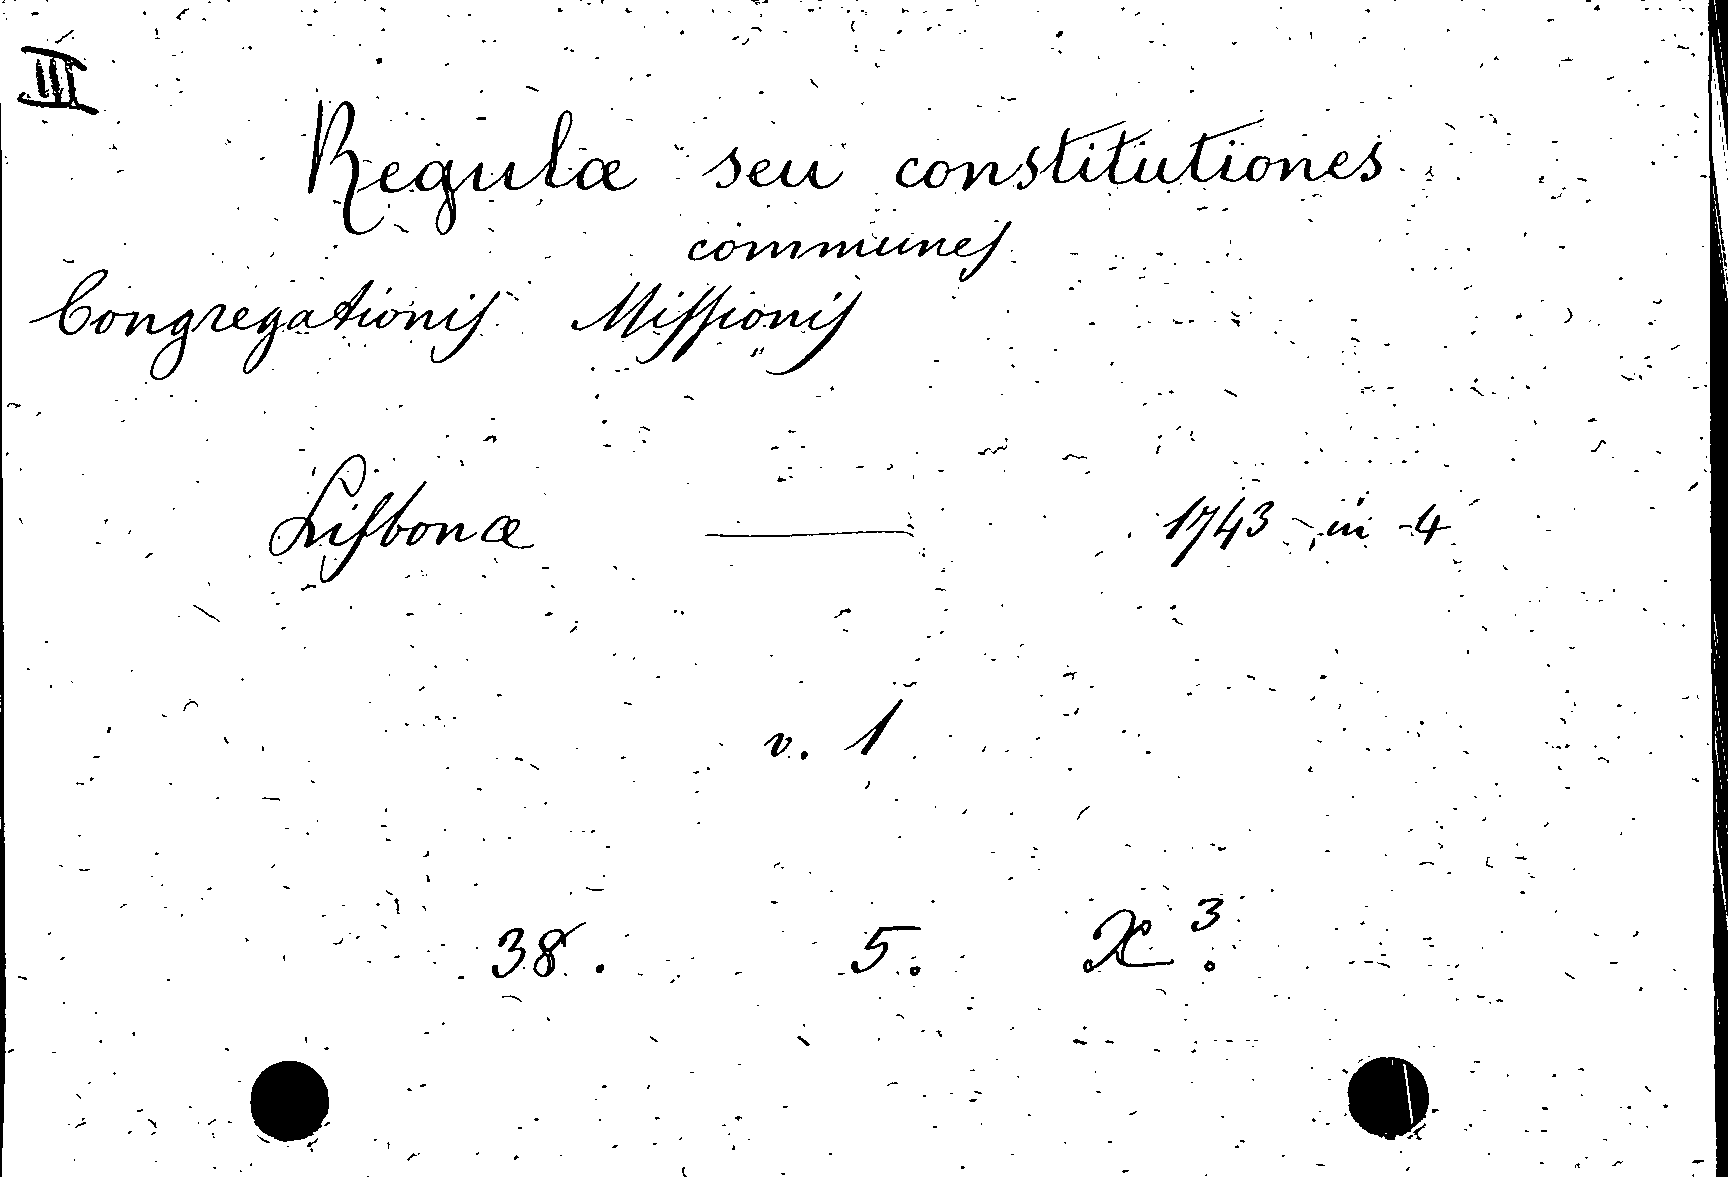 III
Regulæ seu constitutiones
communes
Congregationis Missionis
Lisbonæ — 1743 in 4
v. 1
38. 5. X³.